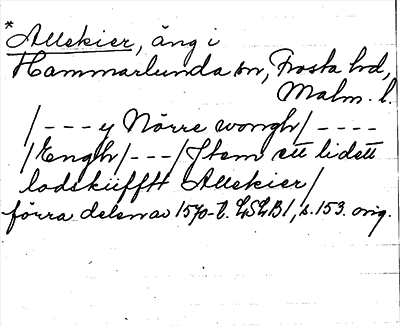 *Allekier, äng i
Hammarlunda sn, Frosta hd,
Malm. l.
/ - - - y Nörre wongh / - - - -
/Engh/ - - - /Jtem ett lidett
lodskiifftt Allekier/
förra delen av 1570-t. LSLB1, s. 153. orig.